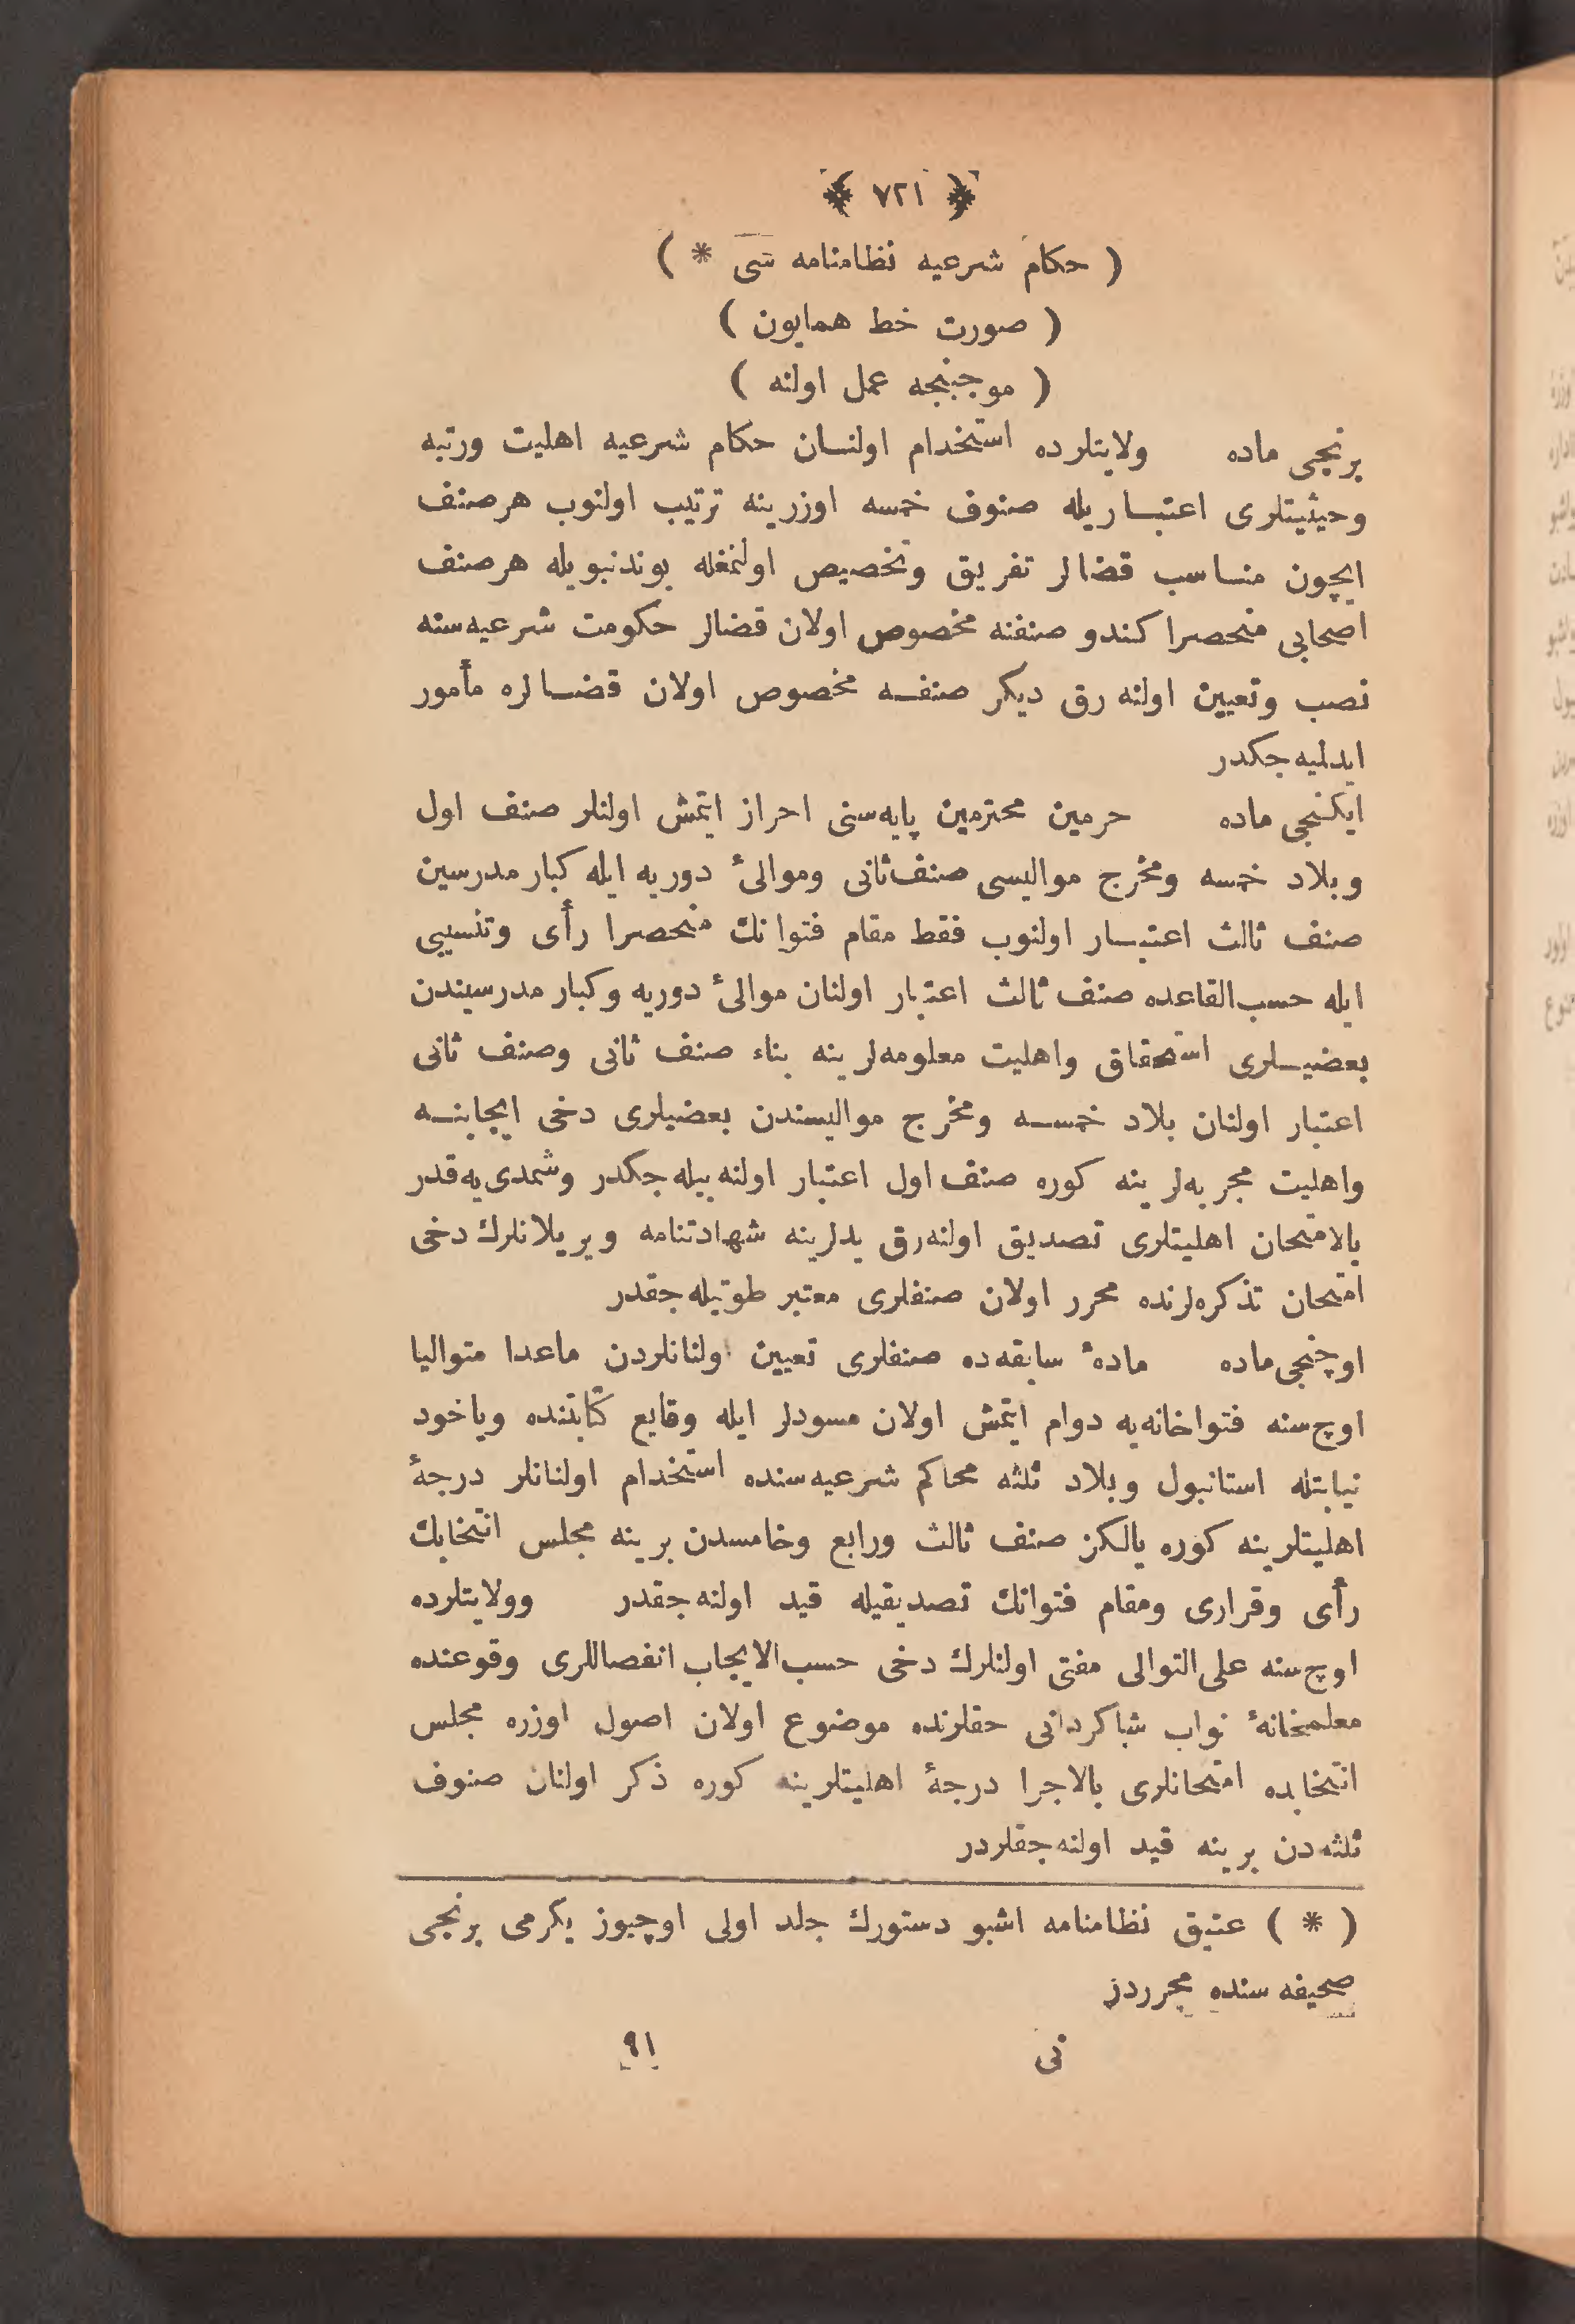 ﴿ ٧٢١ ﴾
( حكام شرعيه نظامنامه سى * )
( صورت خط همايون )
( موجبنجه عمل اولنه )
برنجى ماده ولايتلرده استخدام اولنان حكام شرعيه اهليت ورتبه
وحيثيتلرى اعتباريله صنوف خمسه اوزرينه ترتيب اولنوب هرصنف
ايچون مناسب قضالر تفريق وتخصيص اولنمغله بوندنبويله هرصنف
اصحابى منحصرا كندو صنفنه مخصوص اولان قضالر حكومت شرعيه‌سنه
نصب وتعيين اولنه رق ديكر صنفه مخصوص اولان قضالره مأمور
ايدلميه‌جكدر
ايكنجى ماده حرمين محترمين پايه‌سنى احراز ايتمش اولنلر صنف اول
وبلاد خمسه ومخرج مواليسى صنف‌ثانى وموالئ دوريه ايله كبار مدرسين
صنف ثالث اعتبار اولنوب فقط مقام فتوانك منحصرا رأى وتنسيبى
ايله حسب‌القاعده صنف ثالث اعتبار اولنان موالئ دوريه وكبار مدرسيندن
بعضيلرى استحقاق واهليت معلومه‌لرينه بناء صنف ثانى وصنف ثانى
اعتبار اولنان بلاد خمسه ومخرج مواليسندن بعضيلرى دخى ايجابنه
واهليت مجربه‌لرينه كوره صنف اول اعتبار اولنه‌بيله‌جكدر وشمدى‌يه‌قدر
بالامتحان اهليتلرى تصديق اولنه‌رق يدلرينه شهادتنامه ويريلانلرك دخى
امتحان تذكره‌لرنده محرر اولان صنفلرى معتبر طوتيله‌جقدر
اوچنجى‌ماده مادهٔ سابقه‌ده صنفلرى تعيين اولنانلردن ماعدا متواليا
اوچ‌سنه فتواخانه‌يه دوام ايتمش اولان مسودلر ايله وقايع كتابتنده وياخود
نيابتله استانبول وبلاد ثلثه محاكم شرعيه‌سنده استخدام اولنانلر درجهٔ
اهليتلرينه كوره يالكز صنف ثالث ورابع وخامسدن برينه مجلس انتخابك
رأى وقرارى ومقام فتوانك تصديقيله قيد اولنه‌جقدر وولايتلرده
اوچ‌سنه على‌التوالى مفتى اولنلرك دخى حسب‌الايجاب انفصاللرى وقوعنده
معلمخانهٔ نواب شاكردانى حقلرنده موضوع اولان اصول اوزره مجلس
انتخابده امتحانلرى بالاجرا درجهٔ اهليتلرينه كوره ذكر اولنان صنوف
ثلثه‌دن برينه قيد اولنه‌جقلردر
( * ) عتيق نظامنامه اشبو دستورك جلد اولى اوچيوز يكرمى برنجى
صحيفه سنده محرردر
نى ٩١